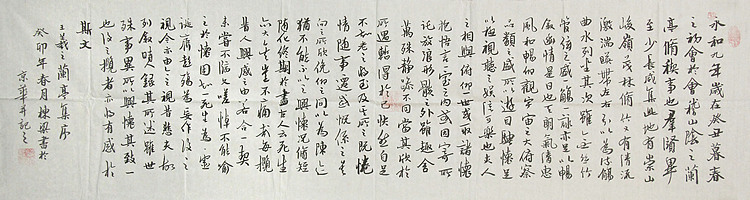 永和九年歲在癸丑暮春
之初會于會稽山陰之蘭
亭脩禊事也羣賢畢
至少長咸集此地有崇山
峻嶺茂林脩竹又有清流
激湍暎帶左右引以為流觴
曲水列坐其次雖無絲竹
管弦之盛一觴一詠亦足以暢
敘幽情是日也天朗氣清惠
風和暢仰觀宇宙之大俯察
品類之盛所以遊目騁懷足
以極視聽之娛信可樂也夫人
之相與俯仰一世或取諸懷
抱悟言一室之內或因寄所
託放浪形骸之外雖趣舍
萬殊靜躁不同當其欣於
所遇暫得於己快然自足
不知老之將至及其所之既惓
情隨事遷感慨係之矣
向之所欣俛仰之間以為陳迹
猶不能不以之興懷況脩短
隨化終期於盡古人云死生
亦大矣豈不痛哉每攬
昔人興感之由若合一契
未嘗不臨文嗟悼不能喻
之於懷固知一死生為虛
誕齊彭殤為妄作後之
視今亦由今之視昔悲夫故
列敘時人錄其所述雖世
殊事異所以興懷其致一
也後之攬者亦將有感於
斯文
王羲之蘭亭集序
癸卯年春月棟梁書於
京華并記之